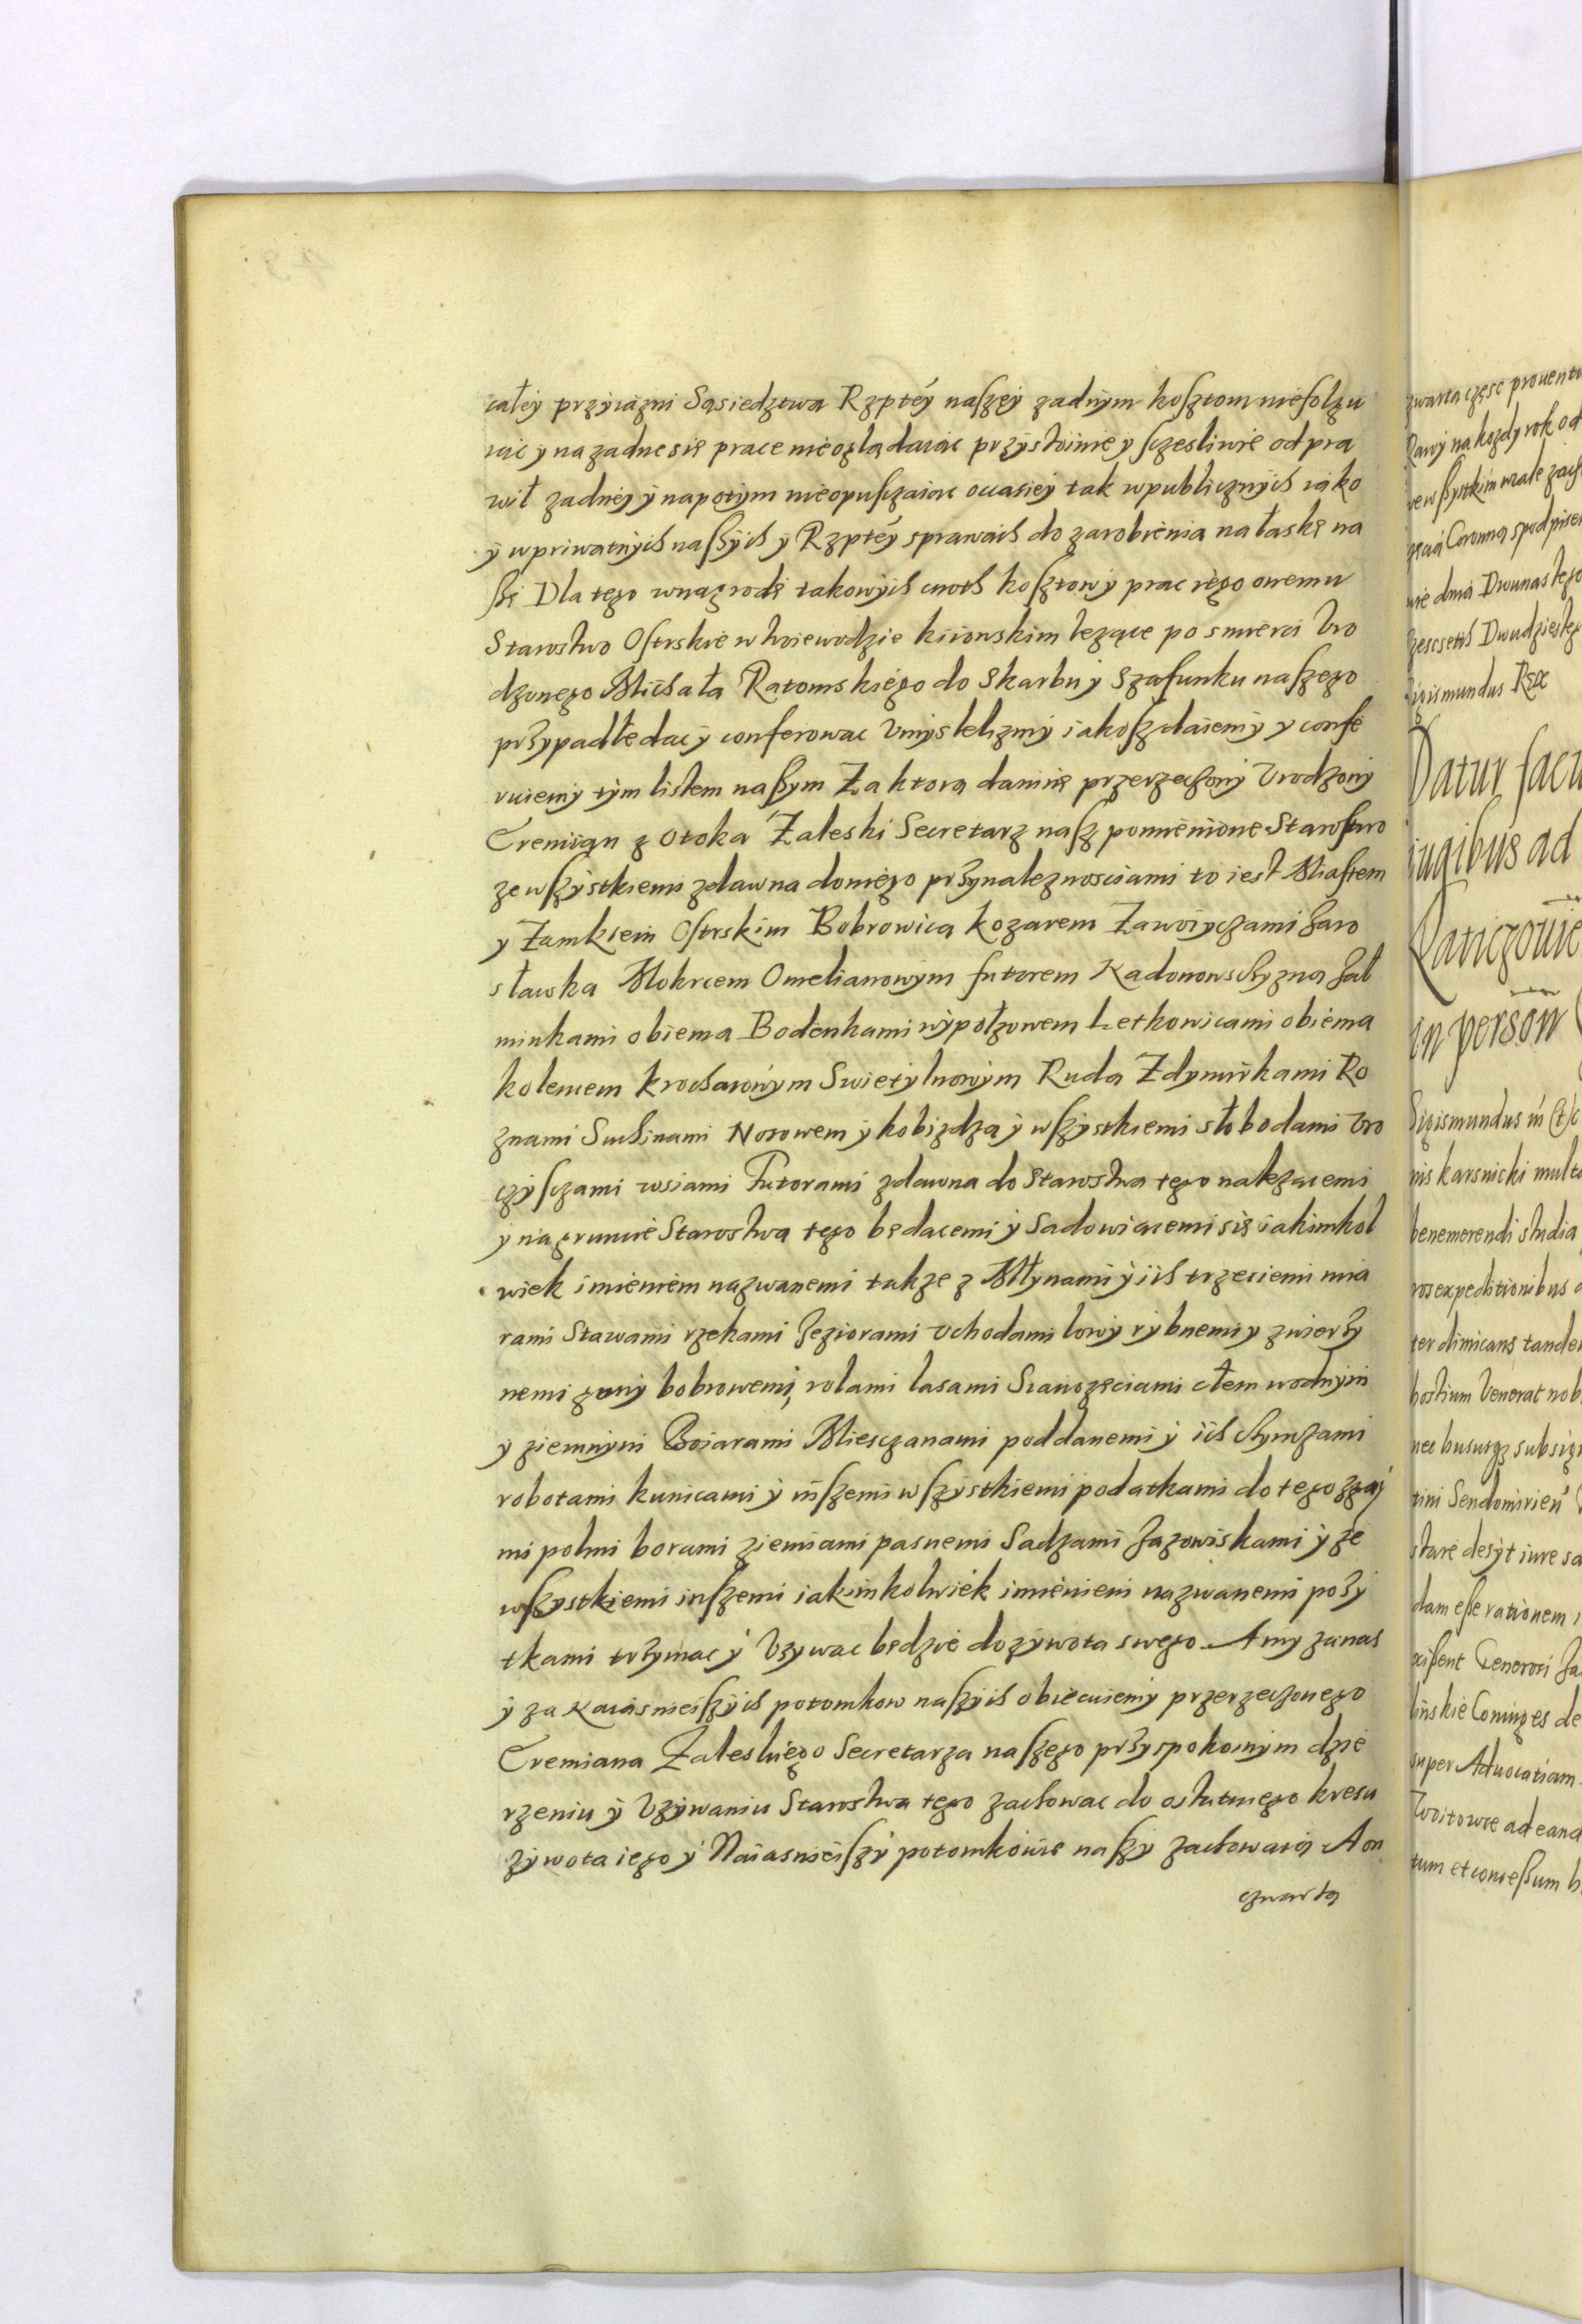 całey przyiazni Sąsiedztwa Rzptéy naszey zadnym kosztom niefolgu
iąc y na zadne się prace nieoglądaiąc przystoinie y sczesliwie odpra
wił zadney y napotym nieopusczaiąc occasiey tak wpublicznych iako
y wpriwatnych naszych y Rzptéy sprawach do zarobienia na łaskę na
szę Dla tego wnagrodę takowych cnoth kosztow y prac iego onemu
Starostwo Ostrskie w Woiewodzie kiiowskim lezące po smierci Vro
dzonego Michała Ratomskiego do Skarbu y Szafunku naszego
przypadłe dac y conferowac Vmyslelizmy iakosz daiemy y confe
ruiemy tym listem naszym Za ktorą daninę przerzeczony Vrodzony
Eremiian z Otoka Zaleski Secretarz nasz pomienione Starostwo
ze wszystkiemi zdawna doniego przynaleznosciami to iest Miastem
y Zamkiem Ostrskim Bobrowicą kozarem Zaworyczami Jaro
sławka Mokrcem Omelianowym futorem Kadonowsczyzną Jał
minkami obiema Bodenkami wypołzowem Letkowicami obiema
kolencem krochaiowym Swietylnowym Ruda Zdymirkami Ro
znami Suchinami Nosowem y kobizdzą y wszystkiemi słobodami Vro
czysczami wsiami Futorami zdawna do Starostwa tego nalezącemi
y na gruncie Starostwa tego bedacemi y Sadowiącemi się iakimkol
wiek imieniem nazwanemi takze z Młynami y iich trzeciemi mia
rami Stawami rzekami Jeziorami vchodami lowy rybnemi y zwierzy
nemi gony bobrowemi, rolami lasami Sianozęciami cłem wodnym
y ziemnym Boiarami Miesczanami poddanemi y iich czynszami
robotami kunicami y inszemi wszystkiemi podatkami do tego zgay
mi polmi borami ziemiami pasnemi Sadzami Jazowiskami y ze
wszystkiemi inszemi iakimkolwiek imieniem nazwanemi pozy
tkami trzymac y Vzywac będzie dozywota swego. A my zanas
y za Naiasnieiszych potomkow naszych obiecuiemy przerzeczonego
Eremiana Zaleskiego Secretarza naszego przyspokoinym dzie
rzeniu y Vzywaniu Starostwa tego zachowac do ostatniego kresu
zywota iego y Naiasnieiszy potomkowie naszy zachowaią A on
czwartą
zwarta częsc prouentu
Rawy na kozdy rok od
ve wszystkim wcale zach
zęcią Coronną spodpise
wie dnia Dwunastego
zescseth Dwudziesteg
Sigismundus Rex
Datur facu
iugibus ad
Raticzowie
in person
Sigismundus iii (t)c
nis karsnicki multo
benemerendi studia
ros expeditionibus
ter dimicans tande
hostium Venerat nob
nec hususqz subsig
tini Sendomirien
stare desÿt iure sa
dam esse rationem
xissent Generosi Ja
linskie Coniuges de
super Aduocatiam
Woitowce ad eand
tum et concessum h